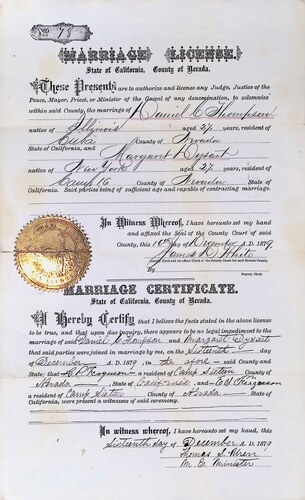 No 78
MARRIAGE LICENSE.
State of California, County of Nevada.
These Presents are to authorize and license any Judge, Justice of the
Peace, Mayor, Priest, or Minister of the Gospel of any denomination, to solemnize
within said County, the marriage of Daniel C Thompson
native of Illinois aged 27 years, resident of
Cuba County of Nevada
State of California, and Margaret Dysart
native of New York aged 27 years, resident of
Camp 16 County of Nevada State of
California. Said parties being of sufficient age and capable of contracting marriage.
In Witness Whereof, I have hereunto set my hand
and affixed the Seal of the County Court of said
County, this day of December A. D. 1879
James D White
Clerk and ex-officio Clerk of the County Court for said Nevada County.
By
Deputy Clerk.
MARRIAGE CERTIFICATE.
State of California, County of Nevada.
I Hereby Certify that I believe the facts stated in the above license
to be true, and that upon due inquiry, there appears to be no legal impediment to the
marriage of said Daniel C Thompson and Margaret Dysart
that said parties were joined in marriage by me, on the Sixteenth day
of December A. D. 1879, in the afore said County and
State; that Ferguson a resident of Camp Sixteen County of
Nevada State of California and Ferguson
a resident of Camp Sixteen County of Nevada State of
California, were present as witnesses of said ceremony.
In witness whereof, I have hereunto set my hand, this
Sixteenth day of December A. D. 1879
Thomas S.
M. E. Minister